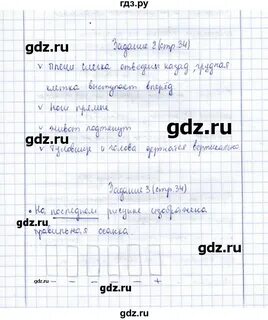 гдз.ру
gdz.ru
Задание 2 (стр 34)
gdz.ru
v плечи слегка отводим назад, грудная
клетка выступает вперёд
gdz.ru
v ноги прямые
gdz.ru
v живот подтянут
v туловище и голова держатся вертикально
gdz.ru
Задание 3 (стр 34)
• На последнем рисунке изображена
правильная осанка
gdz.ru
- - - - - +
gdz.ru